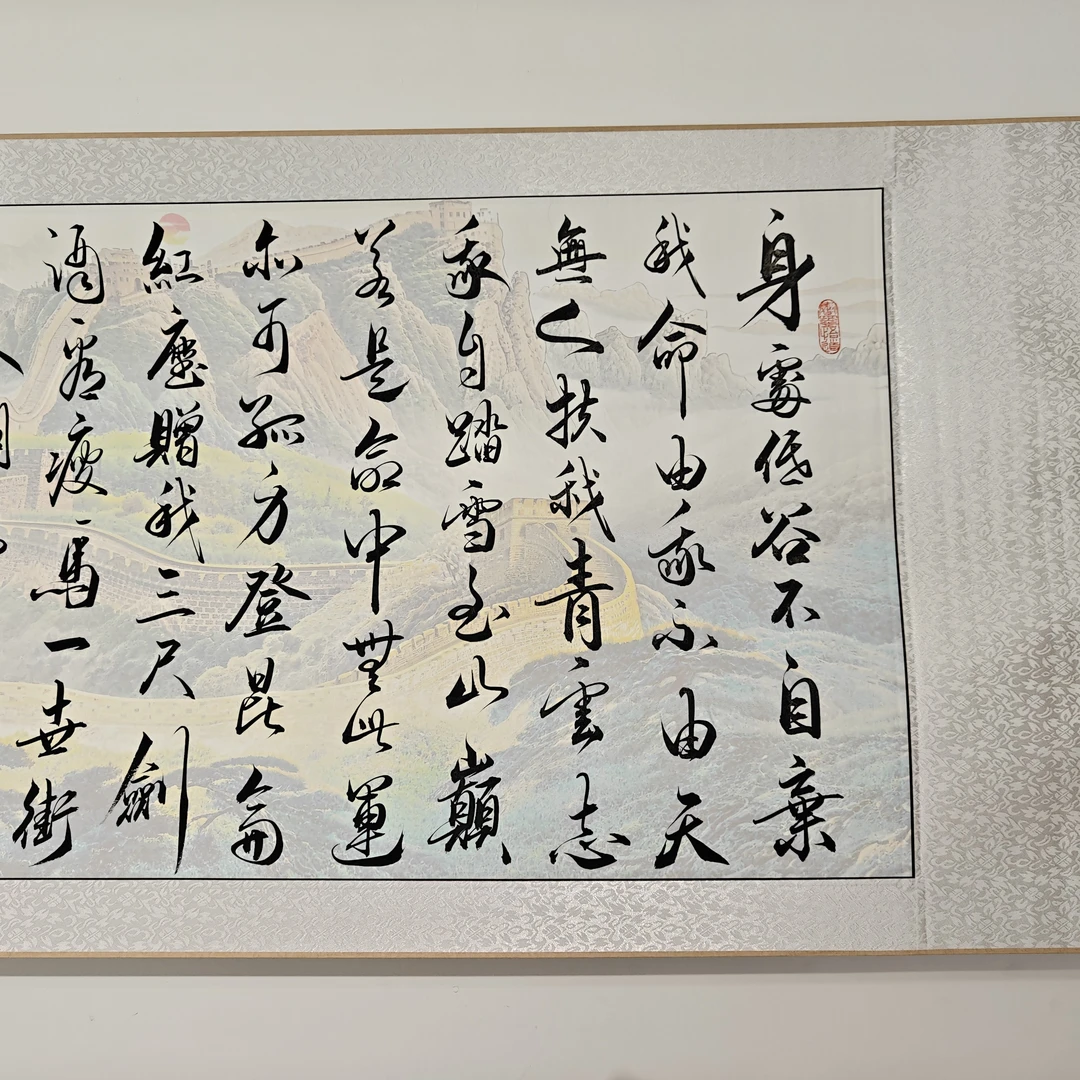 身處低谷不自棄
我命由我不由天
無人扶我青雲志
我自踏雪至山巔
若是命中無此運
亦可孤方登昆侖
紅塵贈我三尺劍
酒瘦馬一世街